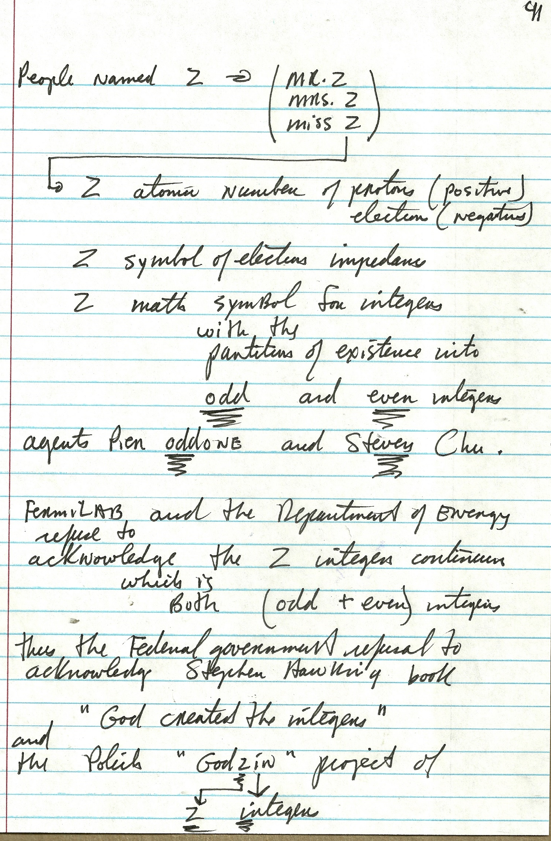 91
People named Z ⇒ (MR. Z
MRS. Z
miss Z)
Z atomic number of protons (positive)
election (negatives)
Z symbol of electens impedance
Z math symbol for integens
with the
partitens of existence into
odd and even integens
agents Pien oddONE and Steven Chu.
FermiLAB and the Department of Energy
refuse to
acknowledge the Z integen continuum
which is
Both (odd + even) integens
thus the Federal government refusal to
acknowledge Stephen Hawking book
"God created the integens"
and
the Polish "Godzin" project of
Z integens